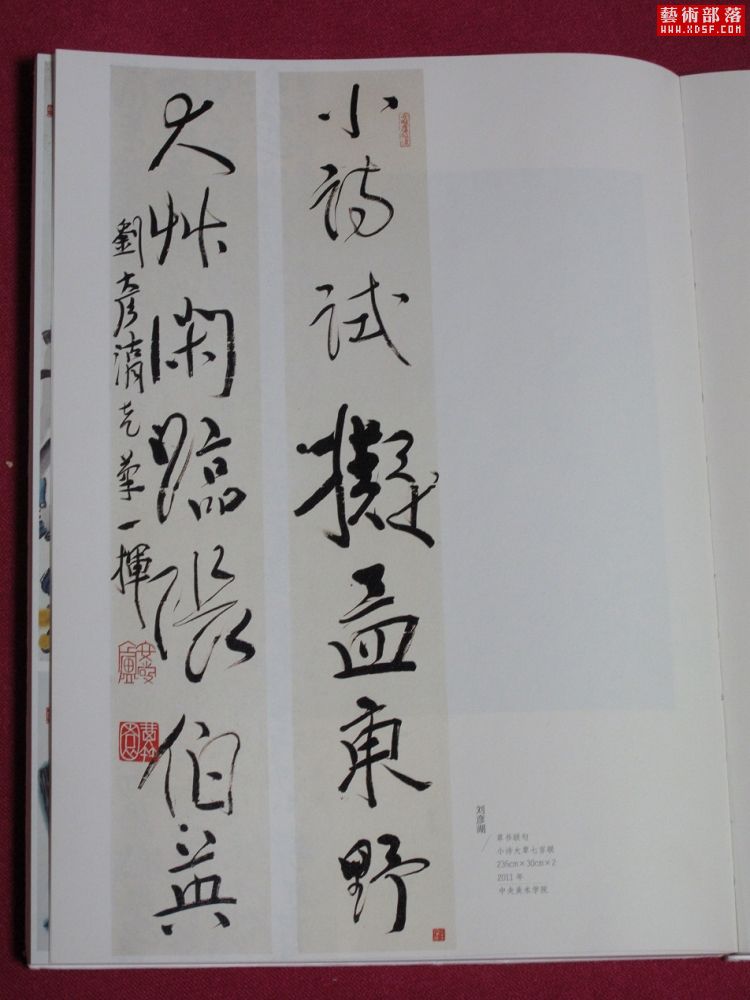 藝術部落
WWW.XDSF.COM
小詩試擬孟東野
大艸閑臨張伯英
劉彥湖克筆一揮
刘彦湖
草书联句
小诗大草七言联
236cm×30cm×2
2011年
中央美术学院